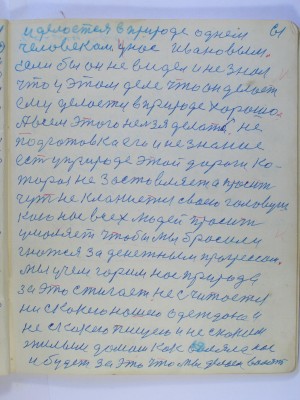 61
и делается в природе одним
человеком у нас Ивановым.
если бы он не видел и не знал
что у этом деле что он делает
ему делаеться в природе хорошо.
А всем этого нельзя делать, не
подготовка его и не знание
есть у природе этой дороги ко-
торая не заставляет а просит
чуть не кланяется своею головушкой
как нас всех людей просит
умоляет чтобы мы бросили
гнатся за денежным процессом.
Мы учем горим нас природа
за это стигает не считается
ни с какою нашею одеждою и
не с какою пищею и не с каким
жилым домом как валяла нас
и будет за это что мы делаем валять